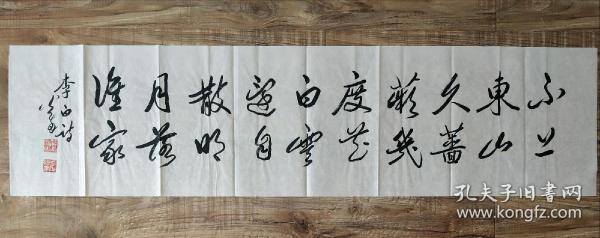 不上
東山
久薔
薇幾
度花
白雲
還自
散明
月落
誰家
李白诗
孔夫子旧书网
www.kongfz.com